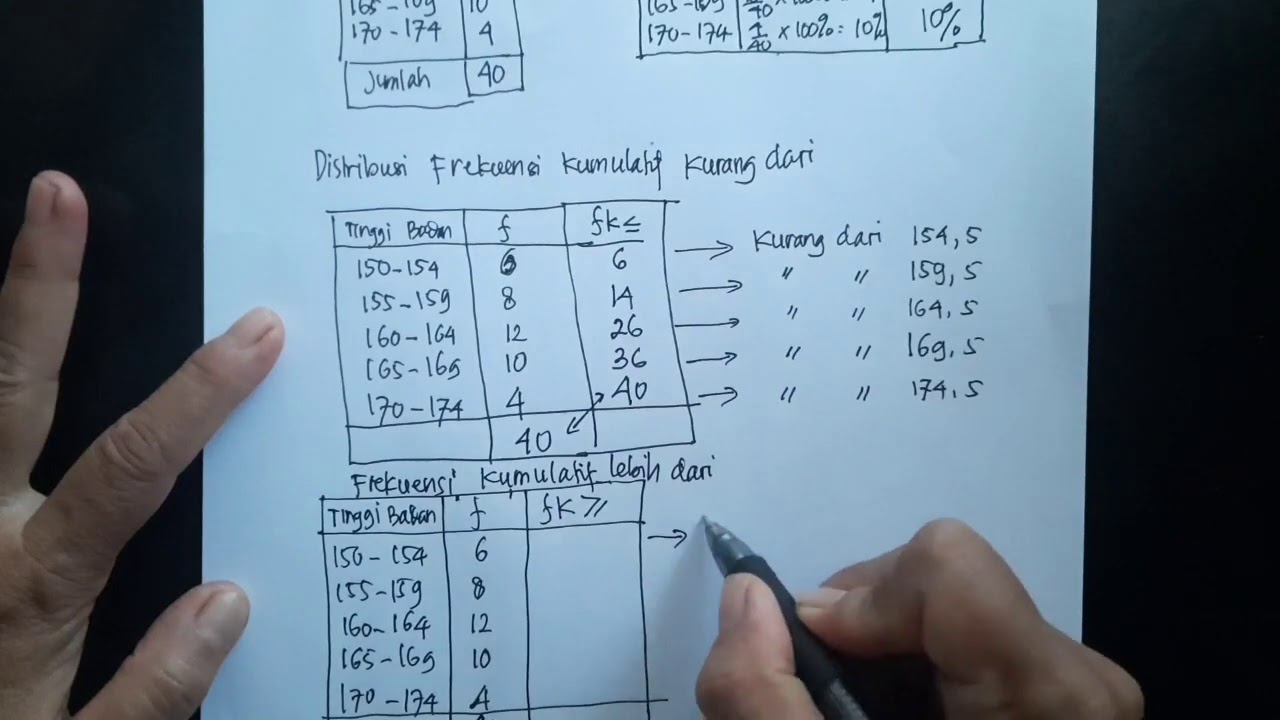 165-169 10
170-174 4
Jumlah 40
165-169 40 × 100%
170-174 4/40 × 100% = 10% 10%
Distribusi Frekuensi Kumulatif Kurang dari
Tinggi Badan f fk≤
150-154 6 6 → Kurang dari 154,5
155-159 8 14 → " " 159,5
160-164 12 26 → " " 164,5
165-169 10 36 → " " 169,5
170-174 4 40 → " " 174,5
40
Frekuensi Kumulatif lebih dari
Tinggi Badan f fk≥
150-154 6 →
155-159 8
160-164 12
165-169 10
170-174 4